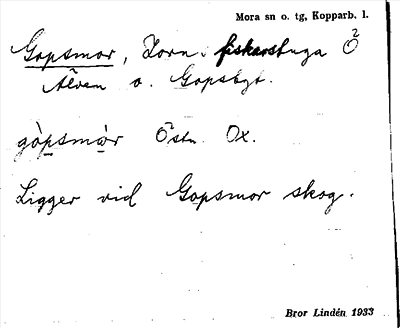 Mora sn o. tg, Kopparb. l.
Gopsmor, Zorn. fiskarstuga Ö
Älven o. Gopsbgt.
gòpsmòr Östn. Ox.
Ligger vid Gopsmor skog.
Bror Lindén 1933